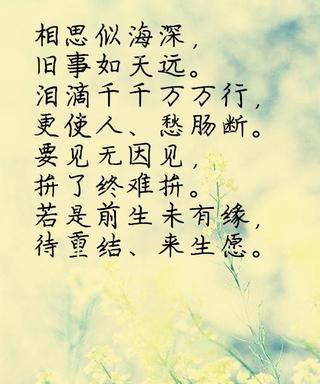 相思似海深，
旧事如天远。
泪滴千千万万行，
更使人、愁肠断。
要见无因见，
拚了终难拚。
若是前生未有缘，
待重结、来生愿。